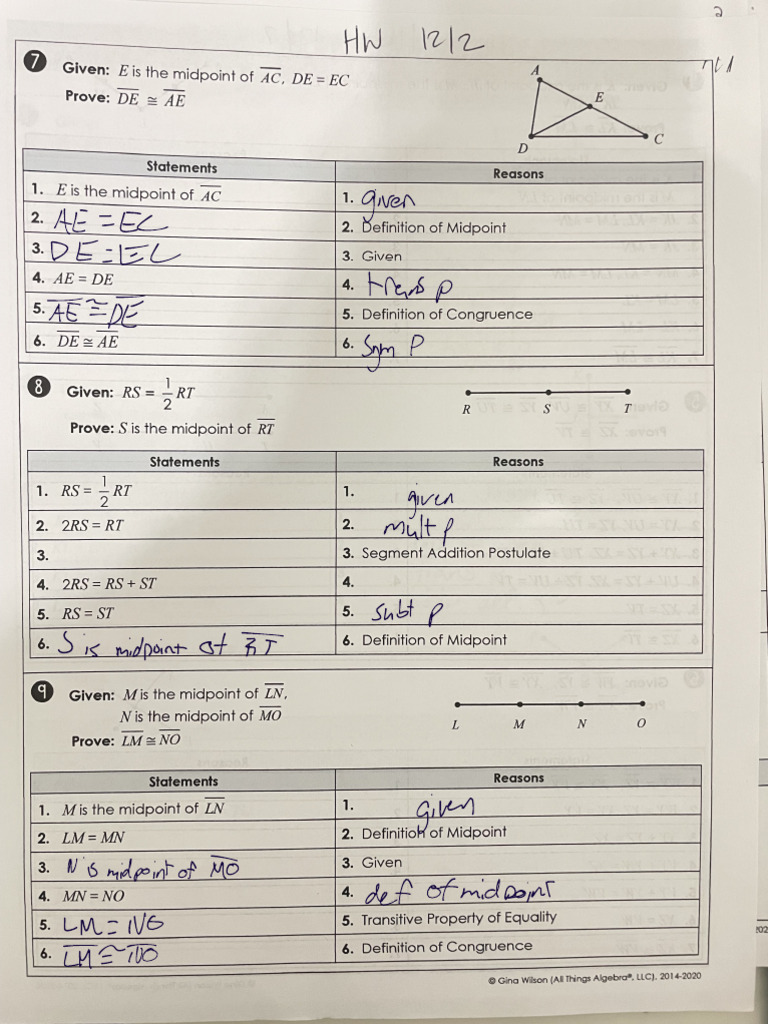 2
HW 12/2
7 Given: E is the midpoint of A̅C̅, DE = EC
Prove: D̅E̅ ≅ A̅E̅
A
E
D
C
Statements
Reasons
1. E is the midpoint of A̅C̅
1. given
2. AE = EC
2. Definition of Midpoint
3. DE = EC
3. Given
4. AE = DE
4. trans p
5. A̅E̅ ≅ D̅E̅
5. Definition of Congruence
6. D̅E̅ ≅ A̅E̅
6. Sym P
8 Given: RS = 1/2 RT
Prove: S is the midpoint of R̅T̅
R S T
Statements
Reasons
1. RS = 1/2 RT
1. given
2. 2RS = RT
2. mult p
3.
3. Segment Addition Postulate
4. 2RS = RS + ST
4.
5. RS = ST
5. subt p
6. S is midpoint of R̅T̅
6. Definition of Midpoint
9 Given: M is the midpoint of L̅N̅,
N is the midpoint of M̅O̅
Prove: L̅M̅ ≅ N̅O̅
L M N O
Statements
Reasons
1. M is the midpoint of L̅N̅
1. given
2. LM = MN
2. Definition of Midpoint
3. N is midpoint of M̅O̅
3. Given
4. MN = NO
4. def of midpoint
5. LM = NO
5. Transitive Property of Equality
6. L̅M̅ ≅ N̅O̅
6. Definition of Congruence
© Gina Wilson (All Things Algebra®, LLC), 2014-2020